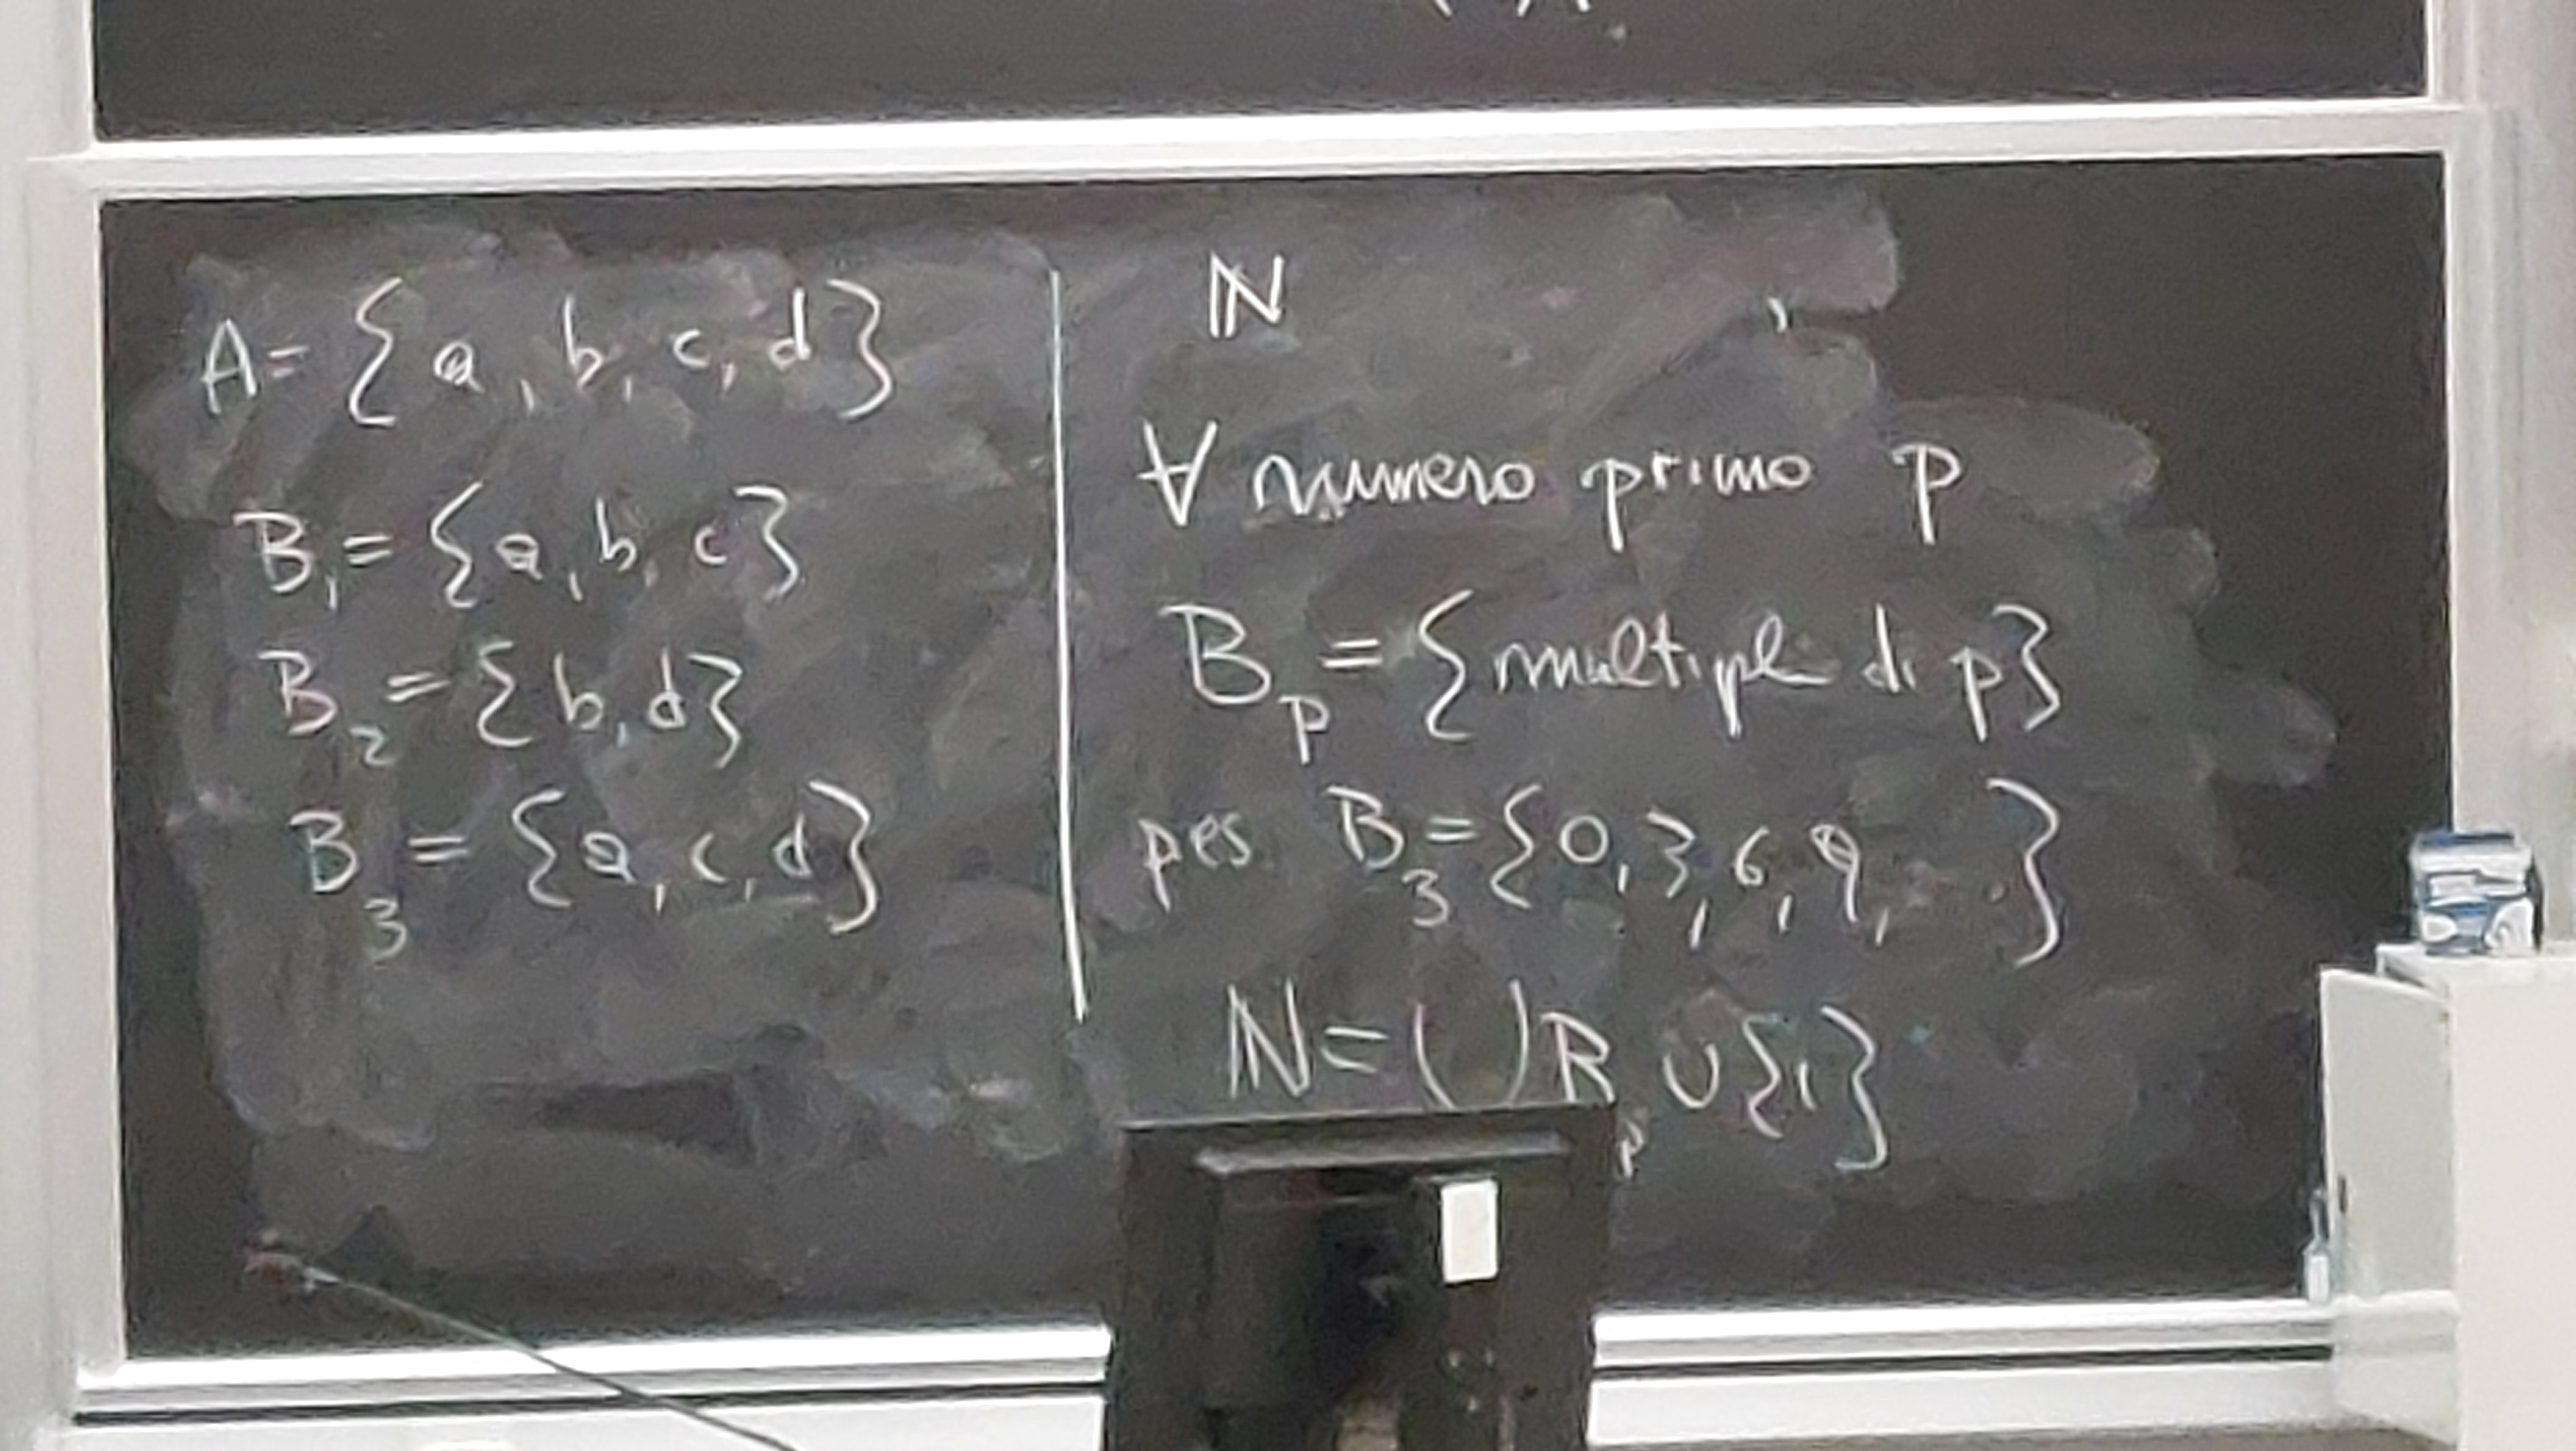 A = { a, b, c, d }
B₁ = { a, b, c }
B₂ = { b, d }
B₃ = { a, c, d }
ℕ
∀ numero primo p
B_p = { multipli di p }
p es. B₃ = { 0, 3, 6, 9, . }
ℕ = ⋃ B_p ∪ {1}